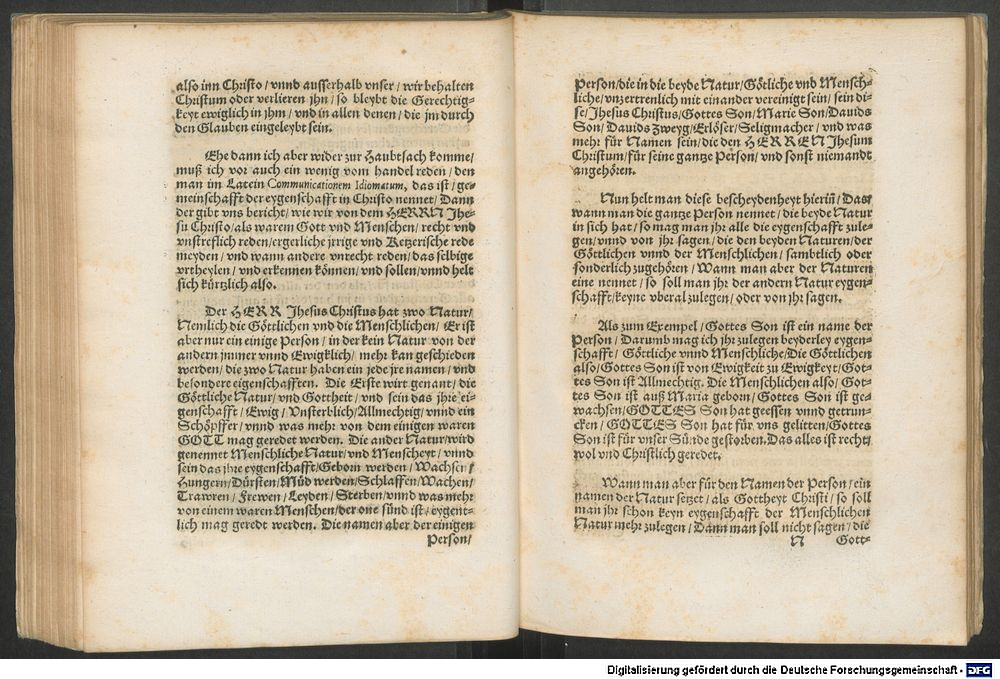 also inn Christo / vnnd ausserhalb vnser / wir behalten
Christum oder verlieren jhn / so bleybt die Gerechtig-
keyt ewiglich in jhm / vnd in allen denen / die jm durch
den Glauben eingeleybt sein.
Ehe dann ich aber wider zur Haubtsach komme /
muß ich vor auch ein wenig vom handel reden / den
man im Latein Communicationem Idiomatum, das ist / ge-
meinschafft der eygenschafft in Christo nennet / Dann
der gibt vns bericht / wie wir von dem HERRN Jhe-
su Christo / als warem Gott vnd Menschen / recht vnd
vnstreflich reden / ergerliche jrrige vnd Ketzerische rede
meyden / vnd wann andere vnrecht reden / das selbige
vrtheylen / vnd erkennen können / vnd sollen / vnnd helt
sich kürtzlich also.
Der HERR Jhesus Christus hat zwo Natur /
Nemlich die Göttlichen vnd die Menschlichen / Er ist
aber nur ein einige Person / in der kein Natur von der
andern jmmer vnnd Ewigklich / mehr kan geschieden
werden / die zwo Natur haben ein jede jre namen / vnd
besondere eigenschafften. Die Erste wirt genant / die
Göttliche Natur / vnd Gottheit / vnd sein das jhre ei-
genschafft / Ewig / Vnsterblich / Allmechtig / vnnd ein
Schöpffer / vnnd was mehr von dem einigen waren
GOTT mag geredet werden. Die ander Natur / wird
genennet Menschliche Natur / vnd Menscheyt / vnnd
sein das jhre eygenschafft / Geborn werden / Wachsen /
Hungern / Dürsten / Müd werden / Schlaffen / Wachen /
Trawren / Frewen / Leyden / Sterben / vnnd was mehr
von einem waren Menschen / der one sünd ist / eygent-
lich mag geredt werden. Die namen aber der einigen
Person /
Person / die in die beyde Natur / Götliche vnd Mensch-
liche / vnzertrenlich mit einander vereinigt sein / sein di-
se / Jhesus Christus / Gottes Son / Marie Son / Dauids
Son / Dauids Zweyg / Erlöser / Seligmacher / vnd was
mehr für Namen sein / die den HERREN Jhesum
Christum / für seine gantze Person / vnd sonst niemandt
angehören.
Nun helt man diese bescheydenheyt hierin / Das
wann man die gantze Person nennet / die beyde Natur
in sich hat / so mag man jhr alle die eygenschafft zule-
gen / vnnd von jhr sagen / die den beyden Naturen / der
Göttlichen vnnd der Menschlichen / samtlich oder
sonderlich zugehören / Wann man aber der Naturen
eine nennet / so soll man jhr der andern Natur eygen-
schafft / keyne vberal zulegen / oder von jhr sagen.
Als zum Exempel / Gottes Son ist ein name der
Person / Darumb mag ich jhr zulegen beyderley eygen-
schafft / Göttliche vnnd Menschliche / Die Göttlichen
also / Gottes Son ist von Ewigkeit zu Ewigkeyt / Got-
tes Son ist Allmechtig. Die Menschlichen also / Got-
tes Son ist auß Maria geborn / Gottes Son ist ge-
wachsen / GOTTES Son hat geessen vnnd getrun-
cken / GOTTES Son hat für vns gelitten / Gottes
Son ist für vnser Sünde gestorben. Das alles ist recht /
wol vnd Christlich geredet.
Wann man aber für den Namen der Person / ein
namen der Natur setzet / als Gottheyt Christi / so soll
man jhr schon keyn eygenschafft der Menschlichen
Natur mehr zulegen / Dann man soll nicht sagen / die
N Gott-
Digitalisierung gefördert durch die Deutsche Forschungsgemeinschaft - DFG